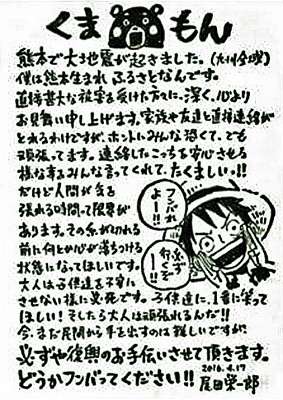 くまもん
熊本で大き地震が起きました。(九州全域)
僕は熊本生まれ ふるさとなんです。
直接甚大な被害を受けた方々に、深く、心より
お見舞い申し上げます。家族や友達と直接連絡が
とれるわけですが、ホントにみんな恐くて、でも
頑張ってます。連絡したこっちを安心させる
様な事をみんな言ってくれて、たくましいっ!!
だけど人間が気を
張れる時間って限界が
あります。その糸が切れる
前に何とか心が落ちつける
状態になってほしいです。
大人は子供達を不安に
させない様に必死です。子供達に、1番に笑って
ほしい!そしたら大人は頑張れるんだ!!
今、まだ尾田から手を出すのは難しいですが、
必ずや復興のお手伝いさせて頂きます。
どうかフンバってください!!
2016.4.17
尾田栄一郎
フンバれよー!!
必ず行くぞー!!